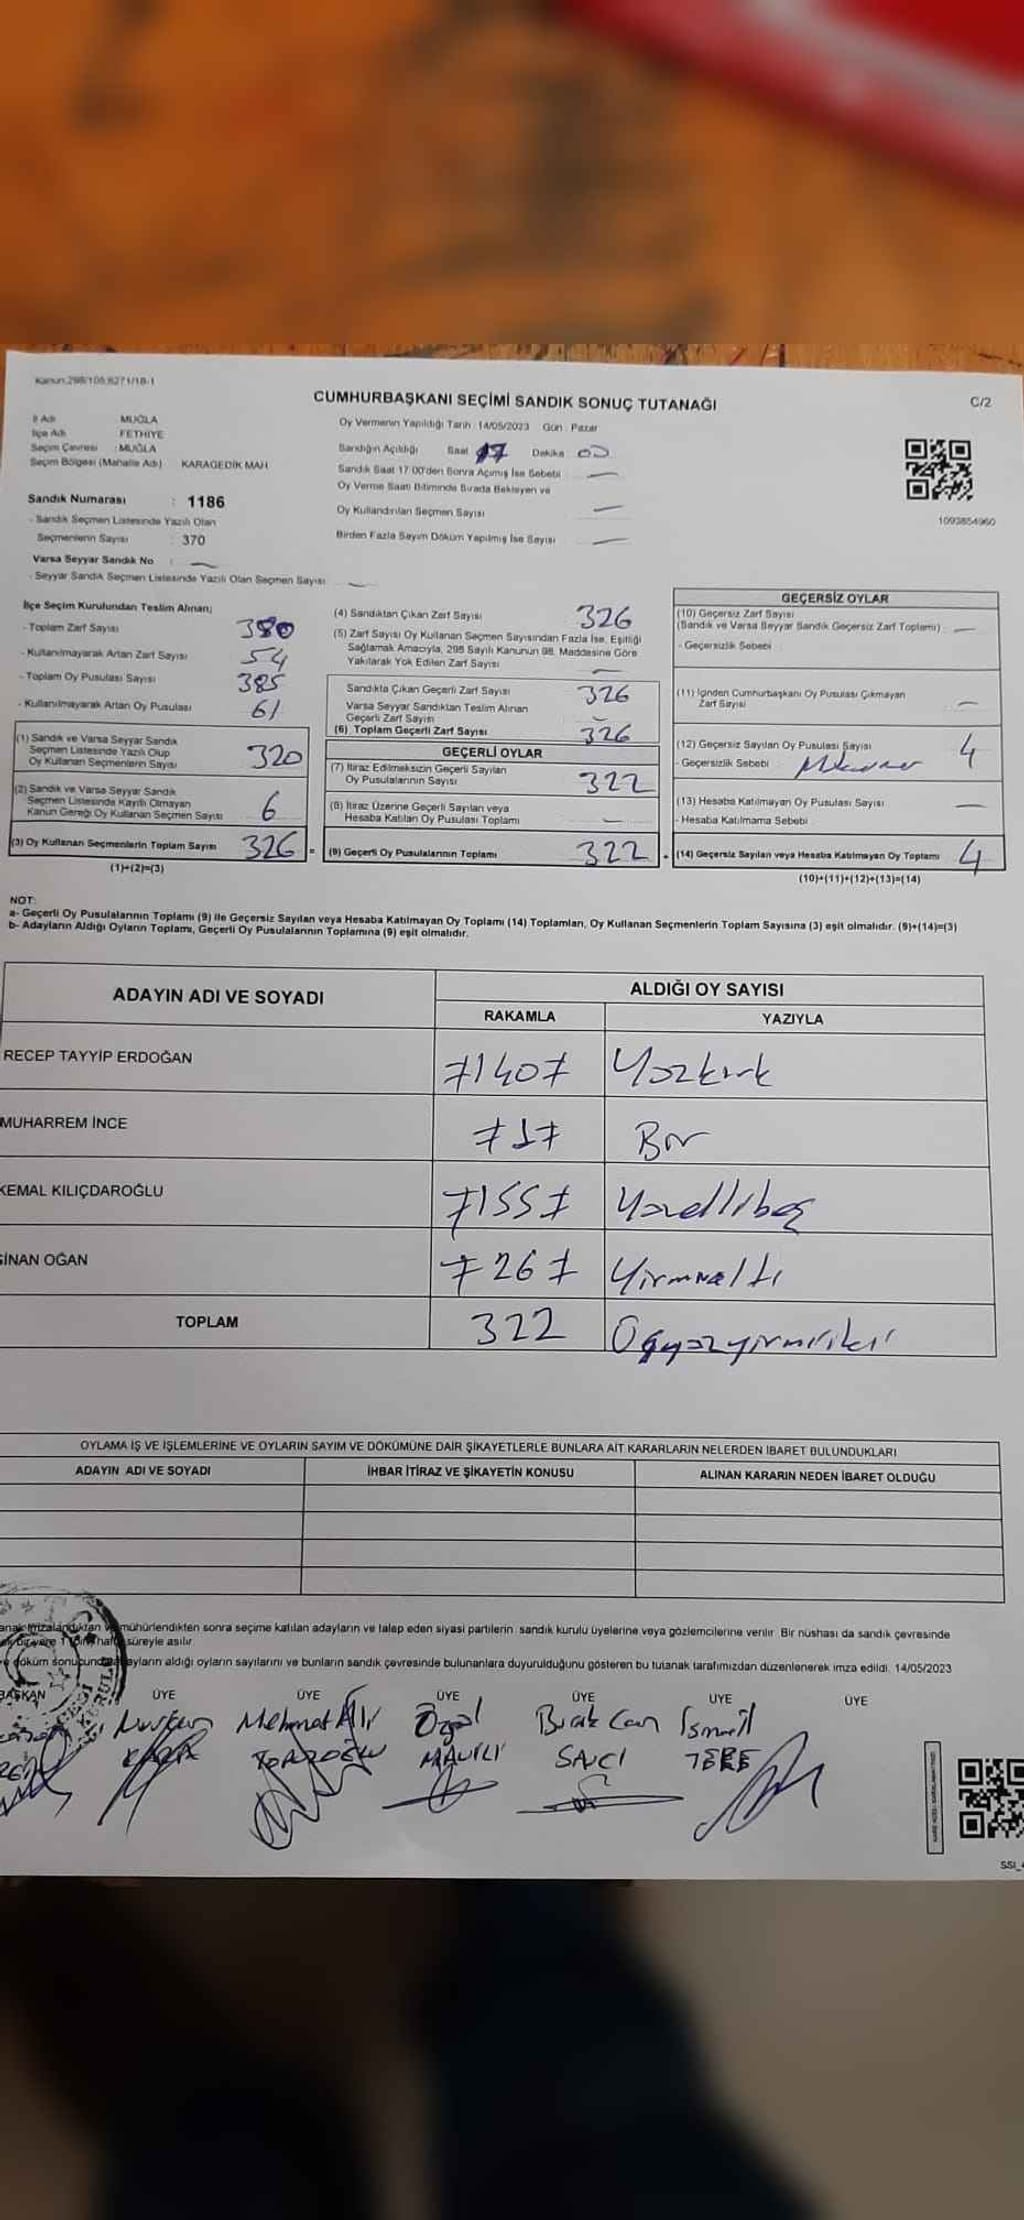 Kanun:298/105,6271/18-1
CUMHURBAŞKANI SEÇİMİ SANDIK SONUÇ TUTANAĞI
C/2
İl Adı MUĞLA
İlçe Adı FETHİYE
Seçim Çevresi : MUĞLA
Seçim Bölgesi (Mahalle Adı) KARAGEDİK MAH
Sandık Numarası : 1186
- Sandık Seçmen Listesinde Yazılı Olan
Seçmenlerin Sayısı : 370
Varsa Seyyar Sandık No : —
- Seyyar Sandık Seçmen Listesinde Yazılı Olan Seçmen Sayısı —
Oy Vermenin Yapıldığı Tarih : 14/05/2023 Gün : Pazar
Sandığın Açıldığı Saat 17 Dakika 00
Sandık Saat 17:00'den Sonra Açılmış İse Sebebi —
Oy Verme Saati Bitiminde Sırada Bekleyen ve
Oy Kullandırılan Seçmen Sayısı —
Birden Fazla Sayım Döküm Yapılmış İse Sayısı —
1093854960
İlçe Seçim Kurulundan Teslim Alınan;
- Toplam Zarf Sayısı 380
- Kullanılmayarak Artan Zarf Sayısı 54
- Toplam Oy Pusulası Sayısı 385
- Kullanılmayarak Artan Oy Pusulası 61
(1) Sandık ve Varsa Seyyar Sandık
Seçmen Listesinde Yazılı Olup
Oy Kullanan Seçmenlerin Sayısı 320
(2) Sandık ve Varsa Seyyar Sandık
Seçmen Listesinde Kayıtlı Olmayan
Kanun Gereği Oy Kullanan Seçmen Sayısı 6
(3) Oy Kullanan Seçmenlerin Toplam Sayısı 326 =
(1)+(2)=(3)
(4) Sandıktan Çıkan Zarf Sayısı 326
(5) Zarf Sayısı Oy Kullanan Seçmen Sayısından Fazla İse, Eşitliği
Sağlamak Amacıyla, 298 Sayılı Kanunun 98. Maddesine Göre
Yakılarak Yok Edilen Zarf Sayısı —
Sandıkta Çıkan Geçerli Zarf Sayısı 326
Varsa Seyyar Sandıktan Teslim Alınan
Geçerli Zarf Sayısı —
(6) Toplam Geçerli Zarf Sayısı 326
GEÇERLİ OYLAR
(7) İtiraz Edilmeksizin Geçerli Sayılan
Oy Pusulalarının Sayısı 322
(8) İtiraz Üzerine Geçerli Sayılan veya
Hesaba Katılan Oy Pusulası Toplamı —
(9) Geçerli Oy Pusulalarının Toplamı 322 +
GEÇERSİZ OYLAR
(10) Geçersiz Zarf Sayısı
(Sandık ve Varsa Seyyar Sandık Geçersiz Zarf Toplamı) : —
- Geçersizlik Sebebi
(11) İçinden Cumhurbaşkanı Oy Pusulası Çıkmayan
Zarf Sayısı —
(12) Geçersiz Sayılan Oy Pusulası Sayısı 4
- Geçersizlik Sebebi
(13) Hesaba Katılmayan Oy Pusulası Sayısı —
- Hesaba Katılmama Sebebi
(14) Geçersiz Sayılan veya Hesaba Katılmayan Oy Toplamı 4
(10)+(11)+(12)+(13)=(14)
NOT:
a- Geçerli Oy Pusulalarının Toplamı (9) ile Geçersiz Sayılan veya Hesaba Katılmayan Oy Toplamı (14) Toplamları, Oy Kullanan Seçmenlerin Toplam Sayısına (3) eşit olmalıdır. (9)+(14)=(3)
b- Adayların Aldığı Oyların Toplamı, Geçerli Oy Pusulalarının Toplamına (9) eşit olmalıdır.
ADAYIN ADI VE SOYADI
ALDIĞI OY SAYISI
RAKAMLA YAZIYLA
RECEP TAYYİP ERDOĞAN ≠140≠ Yüzkırk
MUHARREM İNCE ≠1≠ Bir
KEMAL KILIÇDAROĞLU ≠155≠ Yüzellibeş
SİNAN OĞAN ≠26≠ Yirmialtı
TOPLAM 322 Üçyüzyirmiiki
OYLAMA İŞ VE İŞLEMLERİNE VE OYLARIN SAYIM VE DÖKÜMÜNE DAİR ŞİKAYETLERLE BUNLARA AİT KARARLARIN NELERDEN İBARET BULUNDUKLARI
ADAYIN ADI VE SOYADI İHBAR İTİRAZ VE ŞİKAYETİN KONUSU ALINAN KARARIN NEDEN İBARET OLDUĞU
mühürlendikten sonra seçime katılan adayların ve talep eden siyasi partilerin sandık kurulu üyelerine veya gözlemcilerine verilir. Bir nüshası da sandık çevresinde
süreyle asılır.
döküm sonucunda adayların aldığı oyların sayılarını ve bunların sandık çevresinde bulunanlara duyurulduğunu gösteren bu tutanak tarafımızdan düzenlenerek imza edildi. 14/05/2023
BAŞKAN ÜYE ÜYE ÜYE ÜYE ÜYE ÜYE
Nurten Mehmet Ali Özgül Burak Can İsmail
KARA TOPAZOĞLU MAVİLİ SAVCI TERE